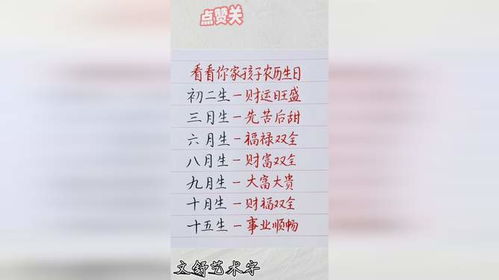 点赞关
看看你家孩子农历生日
初二生-财运旺盛
三月生-先苦后甜
六月生-福禄双全
八月生-财富双全
九月生-大富大贵
十月生-财福双全
十五生-事业顺畅
文舒艺术字